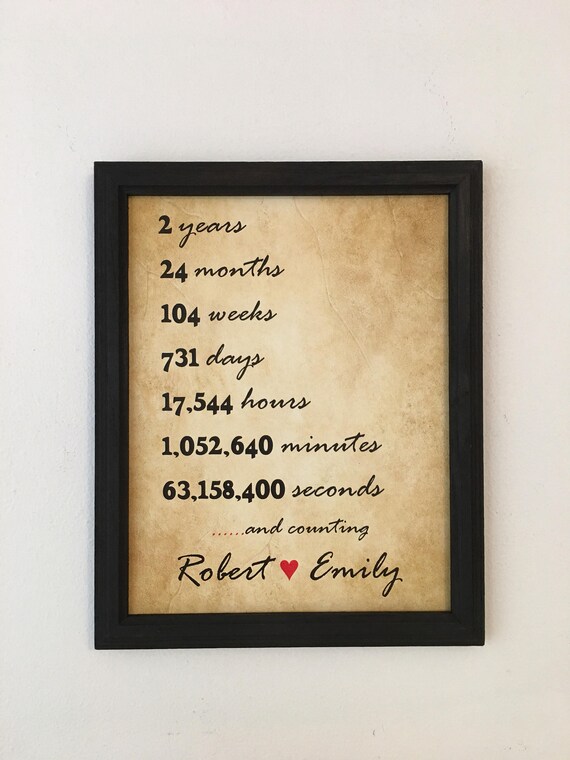 2 years
24 months
104 weeks
731 days
17,544 hours
1,052,640 minutes
63,158,400 seconds
......and counting
Robert ♥ Emily